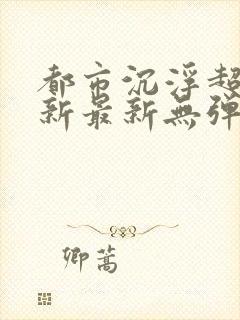 都市沉浮超
新最新無弹
卿蒿